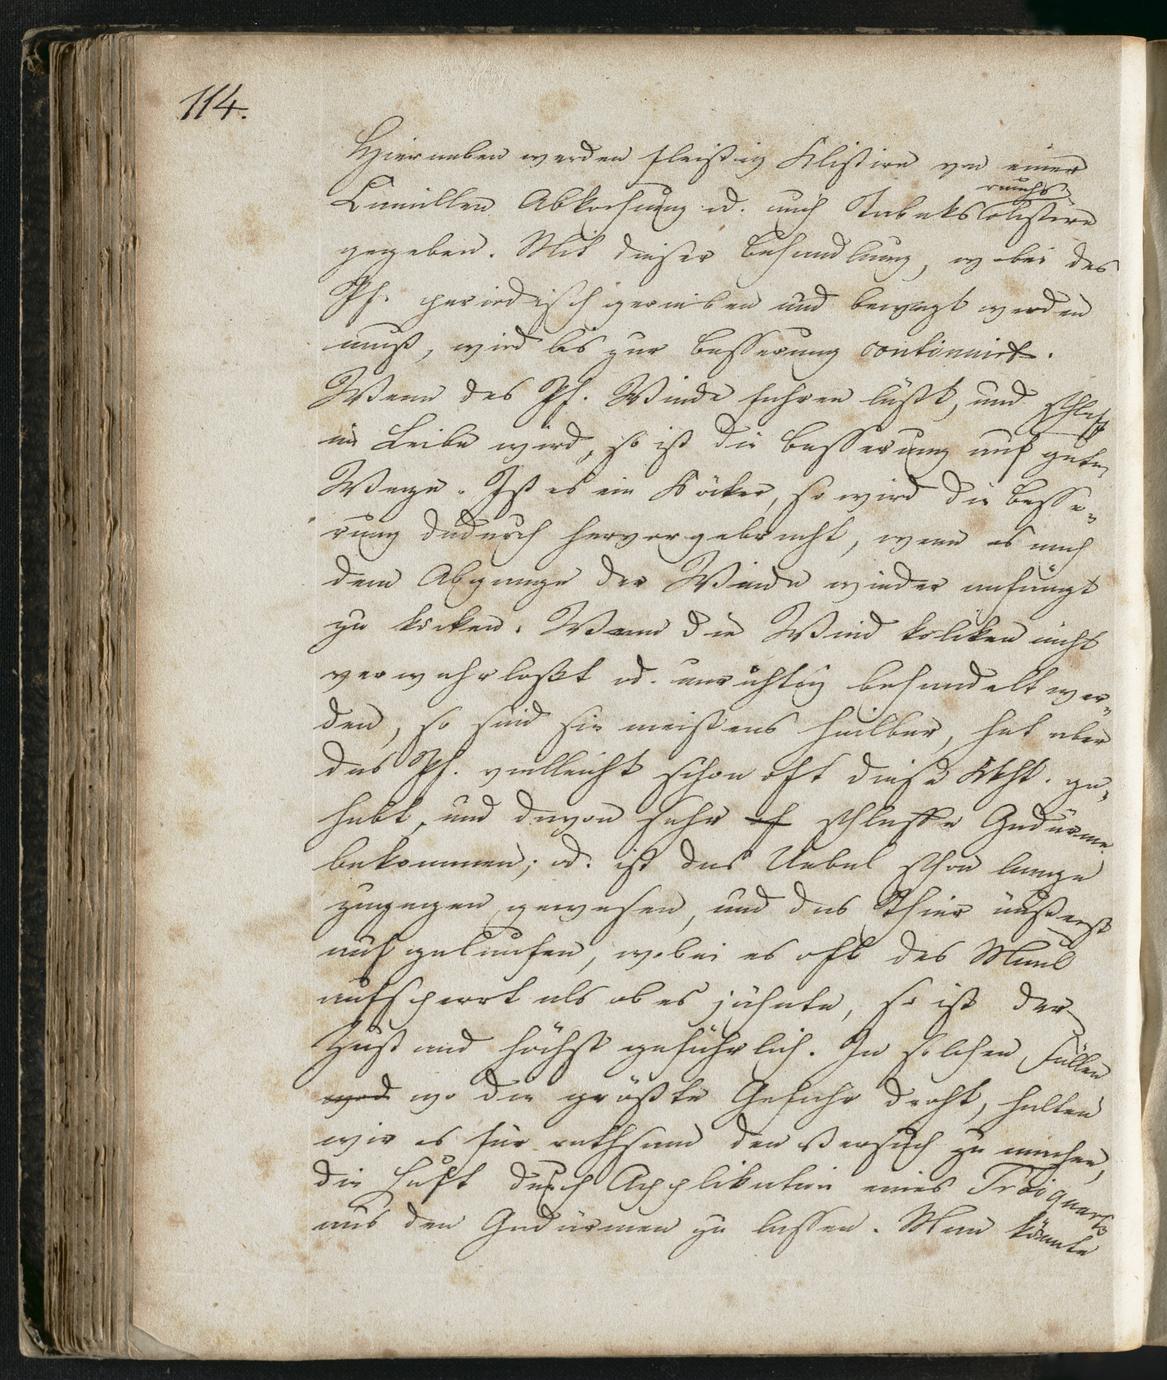 114.
Hierneben werden fleißig Klistire von einer
rauchs
Camillen Abkochung od. auch Tabaksclistire
gegeben. Mit dieser Behandlung, wobei das
Pf. periodisch gerieben und bewegt werden
muß, wird bis zur Besserung continuirt.
Wenn das Pf. Winde fahren läßt, und schlaff
im Leibe wird, so ist die Besserung auf gutem
Wege. Ist es ein Köcker, so wird die Besse-
rung dadurch hervorgebracht, wenn es nach
dem Abgange der Winde wieder anfängt
zu köcken. Wenn die Windkoliken nicht
verwahrloßt od. unrichtig behandelt wer-
den, so sind sie meistens heilbar, hat aber
das Pf. vielleicht schon oft diese Kkht. ge-
habt, und davon sehr schlaffe Gedärme
bekommen; od. ist das Uebel schon lange
zugegen gewesen, und das Thier äußerst
aufgelaufen, wobei es oft das Maul
aufsperrt als ob es jähnte, so ist der
Zustand höchst gefährlich. In solchen Fällen
wo die größte Gefahr droht, halten
wir es für rathsam den Versuch zu machen,
die Luft durch Applikation eines Troiquarts
aus den Gedärmen zu lassen. Man könnte